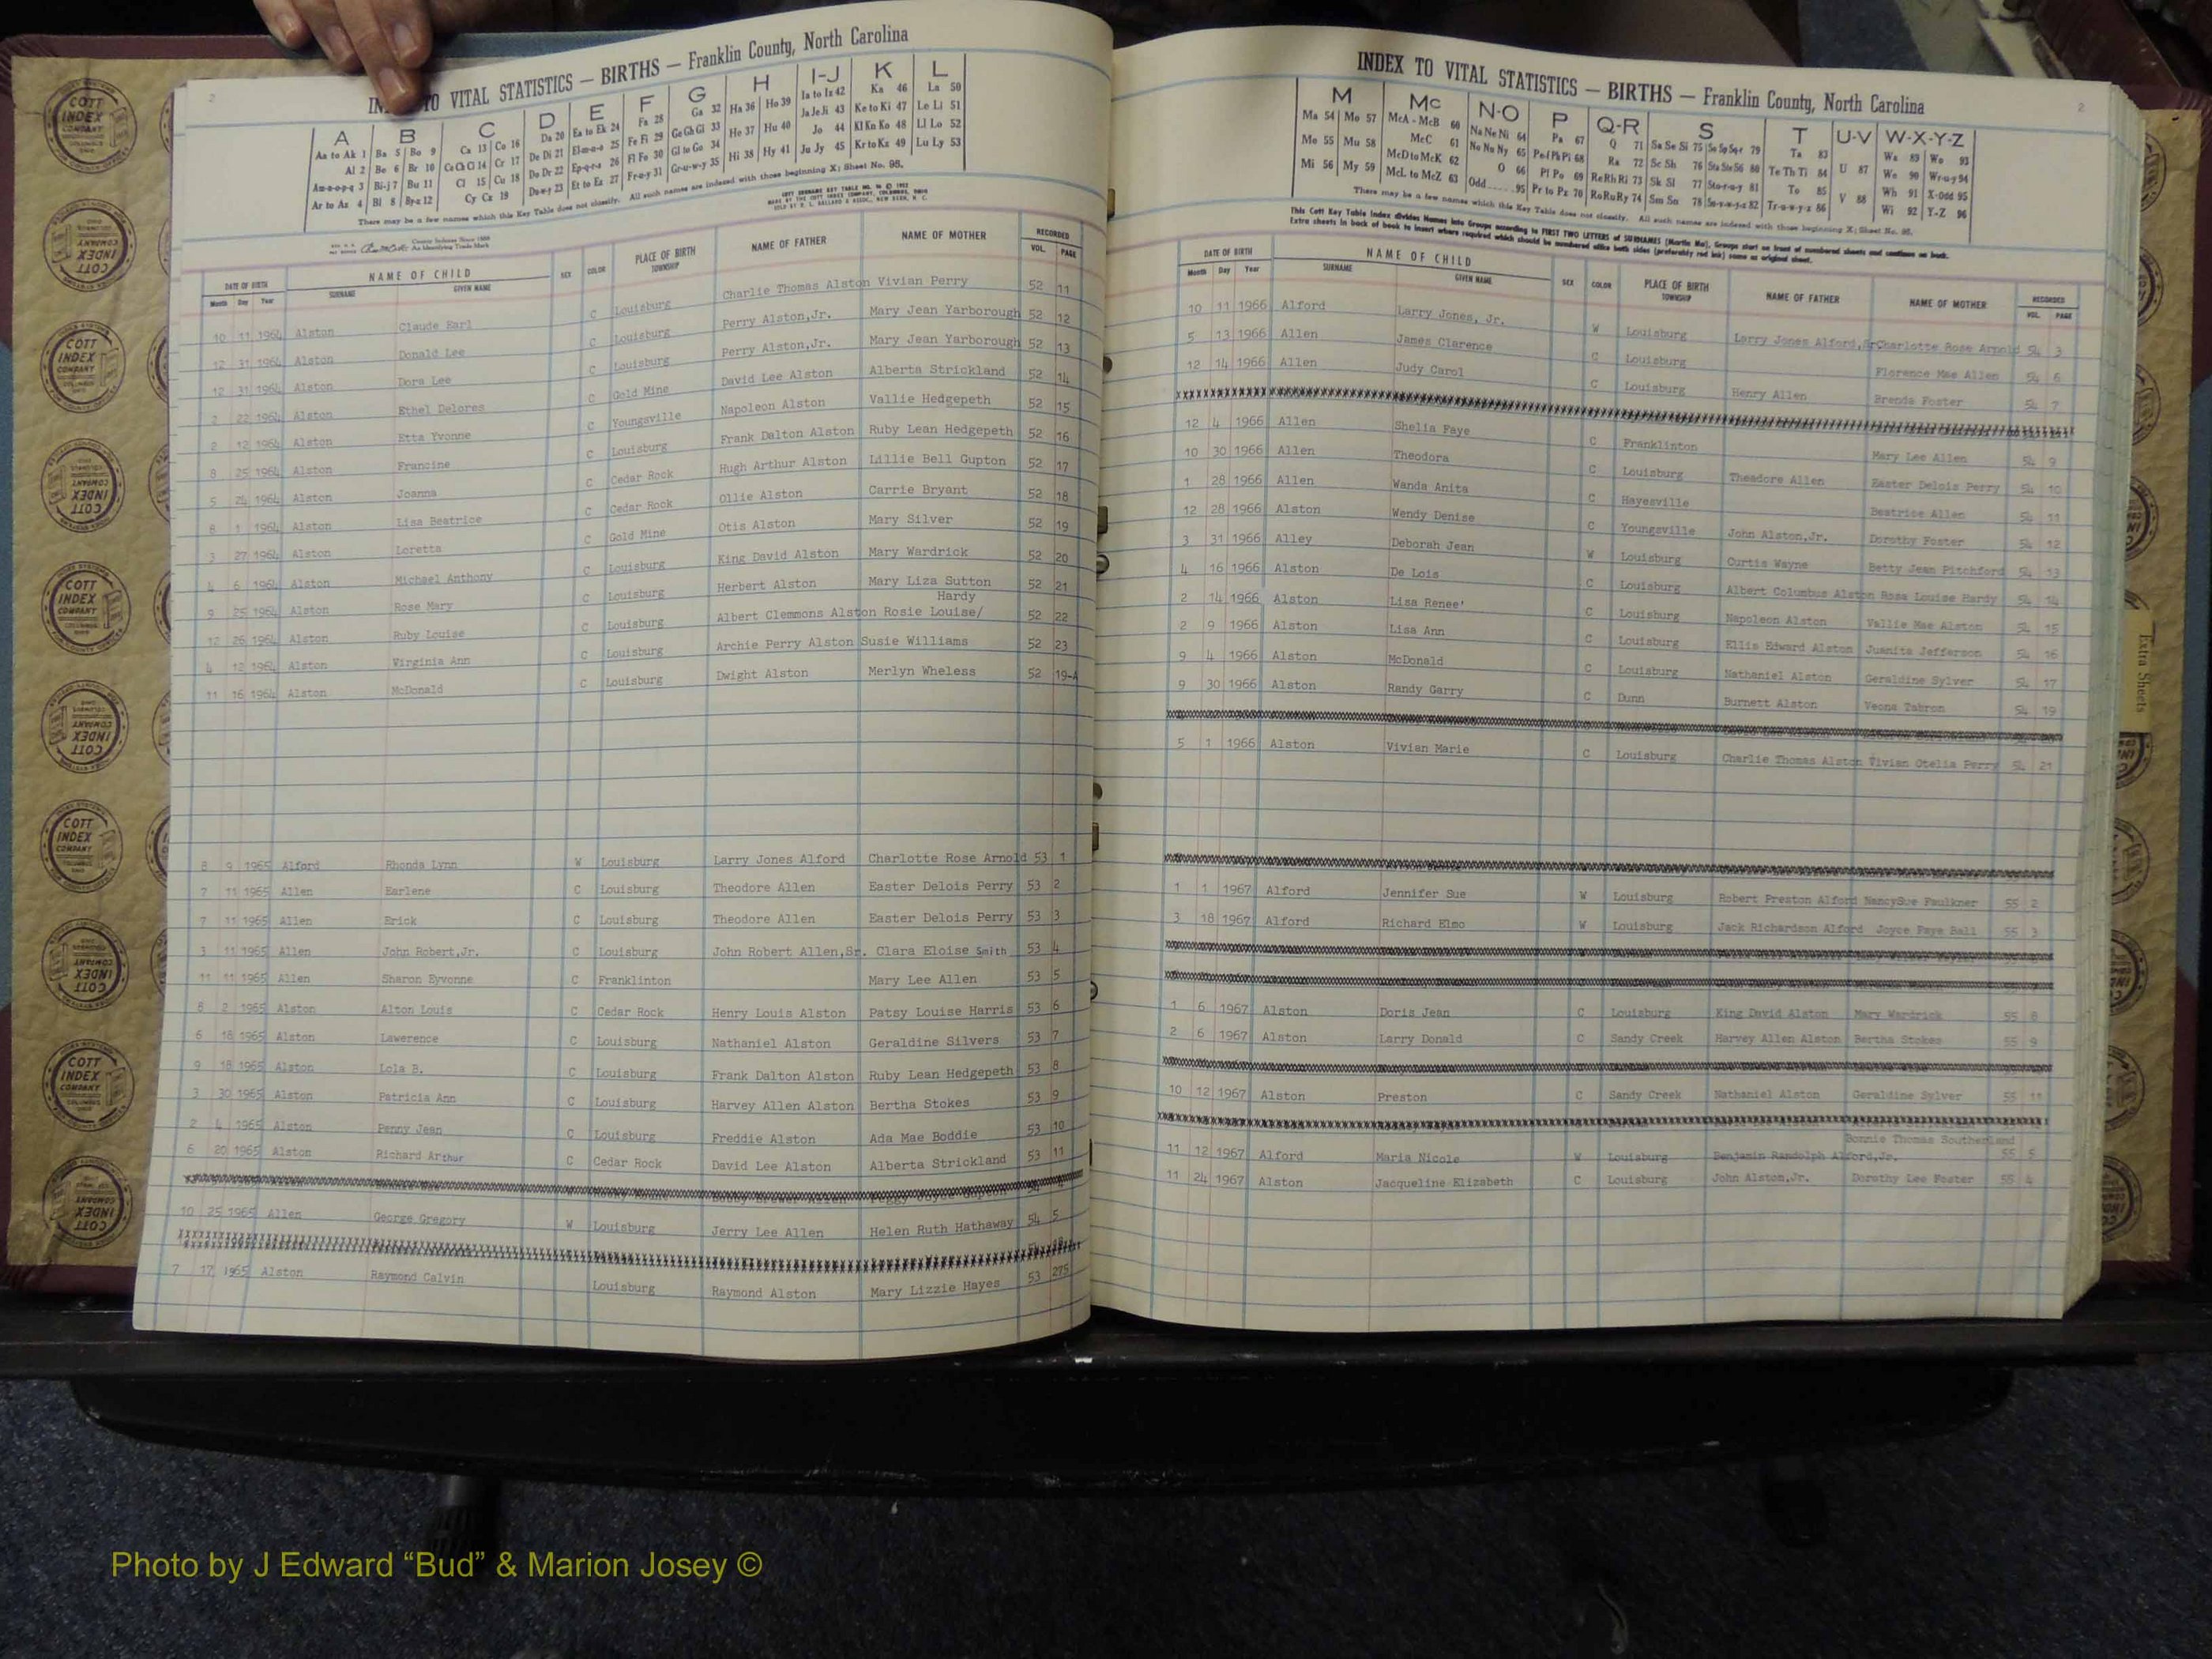 2
INDEX TO VITAL STATISTICS — BIRTHS — Franklin County, North Carolina
A B C D E F G H I-J K L
Aa to Ak 1 Ba 5 Bo 9 Ca 13 Co 16 Da 20 Ea to Ek 24 Fa 28 Ga 32 Ha 36 Ho 39 Ia to Iz 42 Ka 46 La 50
Al 2 Be 6 Br 10 Ce Ch Ci 14 Cr 17 De Di 21 El-m-n-o 25 Fe Fi 29 Ge Gh Gi 33 He 37 Hu 40 Ja Je Ji 43 Ke to Ki 47 Le Li 51
Am-n-o-p-q 3 Bi-j 7 Bu 11 Cl 15 Cu 18 Do Dr 22 Ep-q-r-s 26 Fl Fo 30 Gl to Go 34 Hi 38 Hy 41 Jo 44 Kl Kn Ko 48 Ll Lo 52
Ar to Az 4 Bl 8 By-z 12 Cy Cz 19 Du-w-y 23 Et to Ez 27 Fr-u-y 31 Gr-u-w-y 35 Ju Jy 45 Kr to Kz 49 Lu Ly 53
There may be a few names which this Key Table does not classify. All such names are indexed with those beginning X; Sheet No. 95.
DATE OF BIRTH NAME OF CHILD SEX COLOR PLACE OF BIRTH NAME OF FATHER NAME OF MOTHER RECORDED
Month Day Year SURNAME GIVEN NAME TOWNSHIP VOL. PAGE
10 11 1964 Alston Claude Earl C Louisburg Charlie Thomas Alston Vivian Perry 52 11
12 31 1964 Alston Donald Lee C Louisburg Perry Alston,Jr. Mary Jean Yarborough 52 12
12 31 1964 Alston Dora Lee C Louisburg Perry Alston,Jr. Mary Jean Yarborough 52 13
2 22 1964 Alston Ethel Delores C Gold Mine David Lee Alston Alberta Strickland 52 14
2 12 1964 Alston Etta Yvonne C Youngsville Napoleon Alston Vallie Hedgepeth 52 15
8 25 1964 Alston Francine C Louisburg Frank Dalton Alston Ruby Lean Hedgepeth 52 16
5 24 1964 Alston Joanna C Cedar Rock Hugh Arthur Alston Lillie Bell Gupton 52 17
8 1 1964 Alston Lisa Beatrice C Cedar Rock Ollie Alston Carrie Bryant 52 18
3 27 1964 Alston Loretta C Gold Mine Otis Alston Mary Silver 52 19
4 6 1964 Alston Michael Anthony C Louisburg King David Alston Mary Wardrick 52 20
9 25 1964 Alston Rose Mary C Louisburg Herbert Alston Mary Liza Sutton 52 21
Hardy
12 26 1964 Alston Ruby Louise C Louisburg Albert Clemmons Alston Rosie Louise/ 52 22
4 12 1964 Alston Virginia Ann C Louisburg Archie Perry Alston Susie Williams 52 23
11 16 1964 Alston McDonald C Louisburg Dwight Alston Merlyn Wheless 52 19-A
8 9 1965 Alford Rhonda Lynn W Louisburg Larry Jones Alford Charlotte Rose Arnold 53 1
7 11 1965 Allen Earlene C Louisburg Theodore Allen Easter Delois Perry 53 2
7 11 1965 Allen Erick C Louisburg Theodore Allen Easter Delois Perry 53 3
3 11 1965 Allen John Robert,Jr. C Louisburg John Robert Allen,Sr. Clara Eloise Smith 53 4
11 11 1965 Allen Sharon Eyvonne C Franklinton Mary Lee Allen 53 5
8 2 1965 Alston Alton Louis C Cedar Rock Henry Louis Alston Patsy Louise Harris 53 6
6 16 1965 Alston Lawerence C Louisburg Nathaniel Alston Geraldine Silvers 53 7
9 18 1965 Alston Lola B. C Louisburg Frank Dalton Alston Ruby Lean Hedgepeth 53 8
3 30 1965 Alston Patricia Ann C Louisburg Harvey Allen Alston Bertha Stokes 53 9
2 4 1965 Alston Penny Jean C Louisburg Freddie Alston Ada Mae Boddie 53 10
6 20 1965 Alston Richard Arthur C Cedar Rock David Lee Alston Alberta Strickland 53 11
10 25 1965 Allen George Gregory W Louisburg Jerry Lee Allen Helen Ruth Hathaway 54 5
7 17 1965 Alston Raymond Calvin Louisburg Raymond Alston Mary Lizzie Hayes 53 275
INDEX TO VITAL STATISTICS — BIRTHS — Franklin County, North Carolina
2
M Mc N-O P Q-R S T U-V W-X-Y-Z
Ma 54 Mo 57 McA - McB 60 Na Ne Ni 64 Pa 67 Q 71 Sa Se Si 75 So Sp Sq-r 79 Ta 83 U 87 Wa 89 Wo 93
Me 55 Mu 58 McC 61 No Nu Ny 65 Pe-f Ph Pi 68 Ra 72 Sc Sh 76 Sta Ste Sti 80 Te Th Ti 84 V 88 We 90 Wr-u-y 94
Mi 56 My 59 McD to McK 62 O 66 Pl Po 69 Re Rh Ri 73 Sk Sl 77 Sto-r-u-y 81 To 85 Wh 91 X-odd 95
McL to McZ 63 Odd 95 Pr to Pz 70 Ro Ru Ry 74 Sm Sn 78 Su-v-w-y-z 82 Tr-u-w-y-z 86 Wi 92 Y-Z 96
There may be a few names which this Key Table does not classify. All such names are indexed with those beginning X; Sheet No. 95.
This Cott Key Table Index divides Names into Groups according to FIRST TWO LETTERS of SURNAMES (Martin Ma), Groups start on front of numbered sheets and continue on back.
Extra sheets in back of book to insert where required which should be numbered alike both sides (preferably red ink) same as original sheet.
DATE OF BIRTH NAME OF CHILD SEX COLOR PLACE OF BIRTH NAME OF FATHER NAME OF MOTHER RECORDED
Month Day Year SURNAME GIVEN NAME TOWNSHIP VOL. PAGE
10 11 1966 Alford Larry Jones, Jr. W Louisburg Larry Jones Alford,Sr Charlotte Rose Arnold 54 3
5 13 1966 Allen James Clarence C Louisburg Florence Mae Allen 54 6
12 14 1966 Allen Judy Carol C Louisburg Henry Allen Brenda Foster 54 7
12 4 1966 Allen Shelia Faye C Franklinton Mary Lee Allen 54 9
10 30 1966 Allen Theodora C Louisburg Theodore Allen Easter Delois Perry 54 10
1 28 1966 Allen Wanda Anita C Hayesville Beatrice Allen 54 11
12 28 1966 Alston Wendy Denise C Youngsville John Alston,Jr. Dorothy Foster 54 12
3 31 1966 Alley Deborah Jean W Louisburg Curtis Wayne Betty Jean Pitchford 54 13
4 16 1966 Alston De Lois C Louisburg Albert Columbus Alston Rosa Louise Hardy 54 14
2 14 1966 Alston Lisa Renee' C Louisburg Napoleon Alston Vallie Mae Alston 54 15
2 9 1966 Alston Lisa Ann C Louisburg Ellis Edward Alston Juanita Jefferson 54 16
9 4 1966 Alston McDonald C Louisburg Nathaniel Alston Geraldine Sylver 54 17
9 30 1966 Alston Randy Garry C Dunn Burnett Alston Veona Tabron 54 19
5 1 1966 Alston Vivian Marie C Louisburg Charlie Thomas Alston Vivian Otelia Perry 54 21
1 1 1967 Alford Jennifer Sue W Louisburg Robert Preston Alford NancySue Faulkner 55 2
3 18 1967 Alford Richard Elmo W Louisburg Jack Richardson Alford Joyce Faye Ball 55 3
1 6 1967 Alston Doris Jean C Louisburg King David Alston Mary Wardrick 55 8
2 6 1967 Alston Larry Donald C Sandy Creek Harvey Allen Alston Bertha Stokes 55 9
10 12 1967 Alston Preston C Sandy Creek Nathaniel Alston Geraldine Sylver 55 11
Bonnie Thomas Southerland
11 12 1967 Alford Maria Nicole W Louisburg Benjamin Randolph Alford,Jr. 55 5
11 24 1967 Alston Jacqueline Elizabeth C Louisburg John Alston,Jr. Dorothy Lee Foster 55 4
Extra Sheets
COTT INDEX COMPANY
Photo by J Edward “Bud” & Marion Josey ©